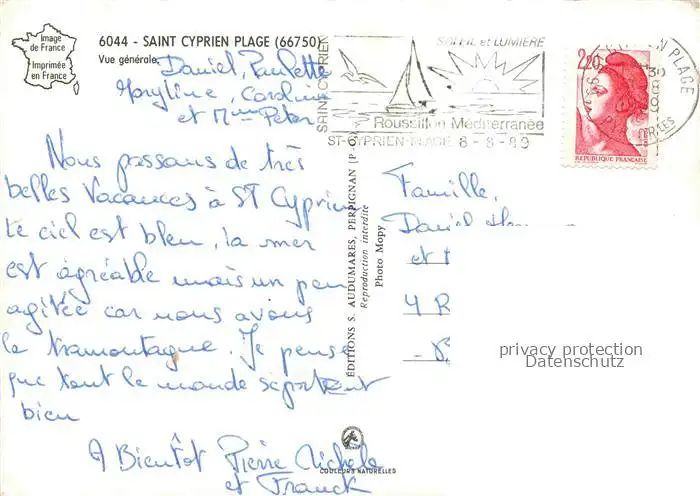 Image
de France
Imprimée
en France
6044 - SAINT CYPRIEN PLAGE (66750)
Vue générale.
Daniel, Paulette
Maryline, Caroline
et Mme Peter
Nous passons de très
belles vacances à ST Cyprien
le ciel est bleu, la mer
est agréable mais un peu
agitée car nous avons
la tramontagne. Je pense
que tout le monde se portent
bien
A Bientôt Pierre Michele
et Franck
SAINT CYPRIEN
SOLEIL et LUMIÈRE
Roussillon Méditerranée
ST-CYPRIEN-PLAGE 8-8-89
2,20
REPUBLIQUE FRANÇAISE
PLAGE
ÉDITIONS S. AUDUMARES, PERPIGNAN (P.
Reproduction interdite
Photo Mopy
Famille,
Daniel
et
4 R
COULEURS NATURELLES
privacy protection
Datenschutz